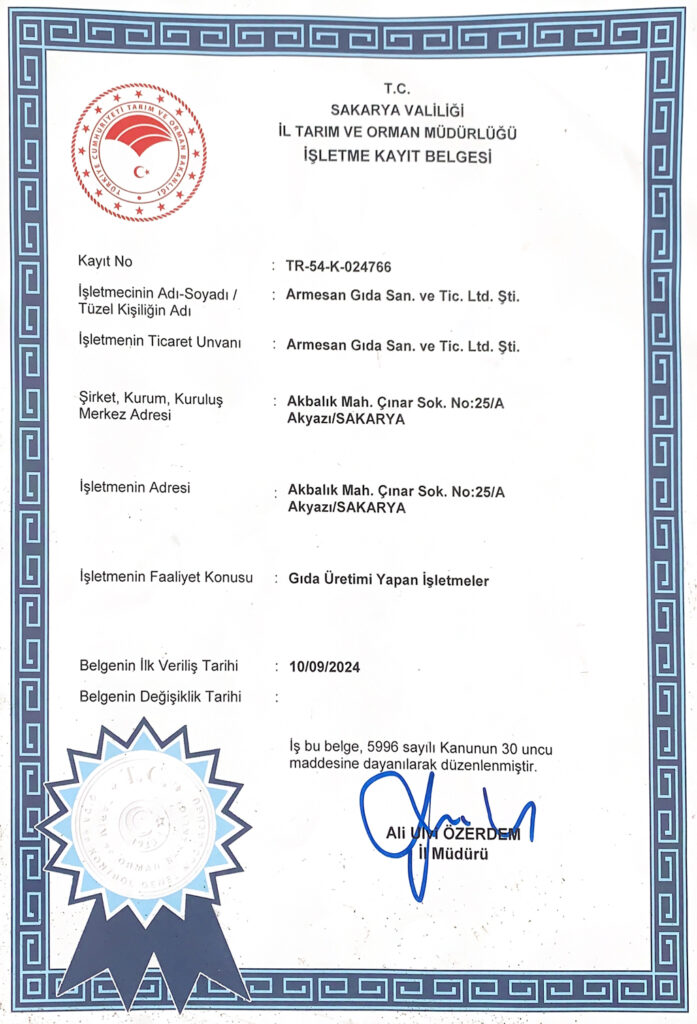 T.C.
SAKARYA VALİLİĞİ
İL TARIM VE ORMAN MÜDÜRLÜĞÜ
İŞLETME KAYIT BELGESİ
TÜRKİYE CUMHURİYETİ TARIM VE ORMAN BAKANLIĞI
Kayıt No : TR-54-K-024766
İşletmecinin Adı-Soyadı / : Armesan Gıda San. ve Tic. Ltd. Şti.
Tüzel Kişiliğin Adı
İşletmenin Ticaret Unvanı : Armesan Gıda San. ve Tic. Ltd. Şti.
Şirket, Kurum, Kuruluş : Akbalık Mah. Çınar Sok. No:25/A
Merkez Adresi Akyazı/SAKARYA
İşletmenin Adresi : Akbalık Mah. Çınar Sok. No:25/A
Akyazı/SAKARYA
İşletmenin Faaliyet Konusu : Gıda Üretimi Yapan İşletmeler
Belgenin İlk Veriliş Tarihi : 10/09/2024
Belgenin Değişiklik Tarihi :
İş bu belge, 5996 sayılı Kanunun 30 uncu
maddesine dayanılarak düzenlenmiştir.
Ali ÖZERDEM
İl Müdürü
T.C.